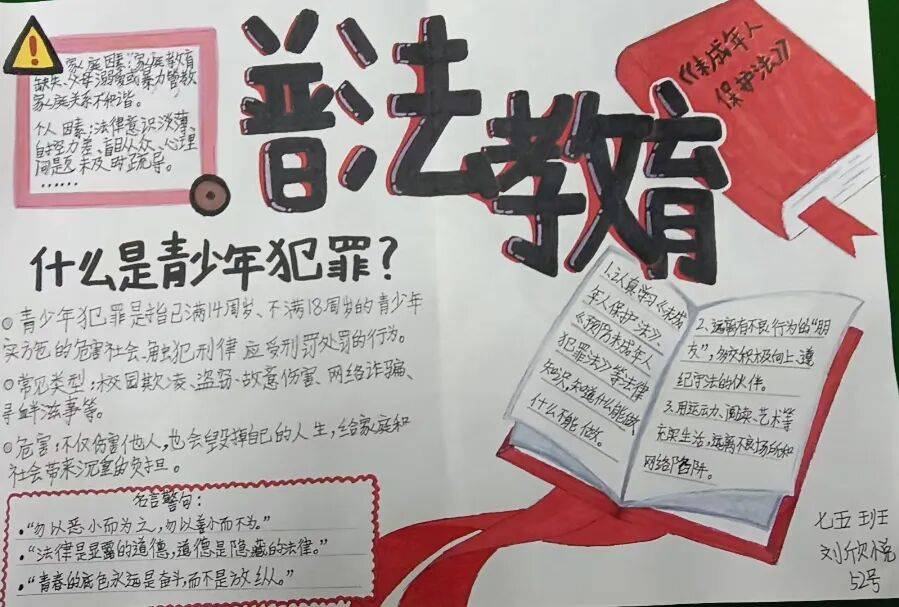 普法教育
《未成年人
保护法》
家庭因素:家庭教育
缺失、父母溺爱或暴力管教
家庭关系不和谐。
个人因素:法律意识淡薄、
自控力差、盲目从众、心理
问题未及时疏导。
……
什么是青少年犯罪?
青少年犯罪是指已满14周岁、不满18周岁的青少年
实施的危害社会、触犯刑律应受刑罚处罚的行为。
常见类型:校园欺凌、盗窃、故意伤害、网络诈骗、
寻衅滋事等。
危害:不仅伤害他人,也会毁掉自己的人生,给家庭和
社会带来沉重的负担。
名言警句:
·“勿以恶小而为之,勿以善小而不为。”
·“法律是显露的道德,道德是隐藏的法律。”
·“青春的底色永远是奋斗,而不是放纵。”
1、认真学习《未成
年人保护法》、
《预防未成年人
犯罪法》等法律
知识,知道什么能做
什么不能做。
2、远离有不良行为的“朋
友”,多交积极向上、遵
纪守法的伙伴。
3、用运动、阅读、艺术等
充实生活,远离不良场所和
网络陷阱。
七五班
刘欣悦
52号